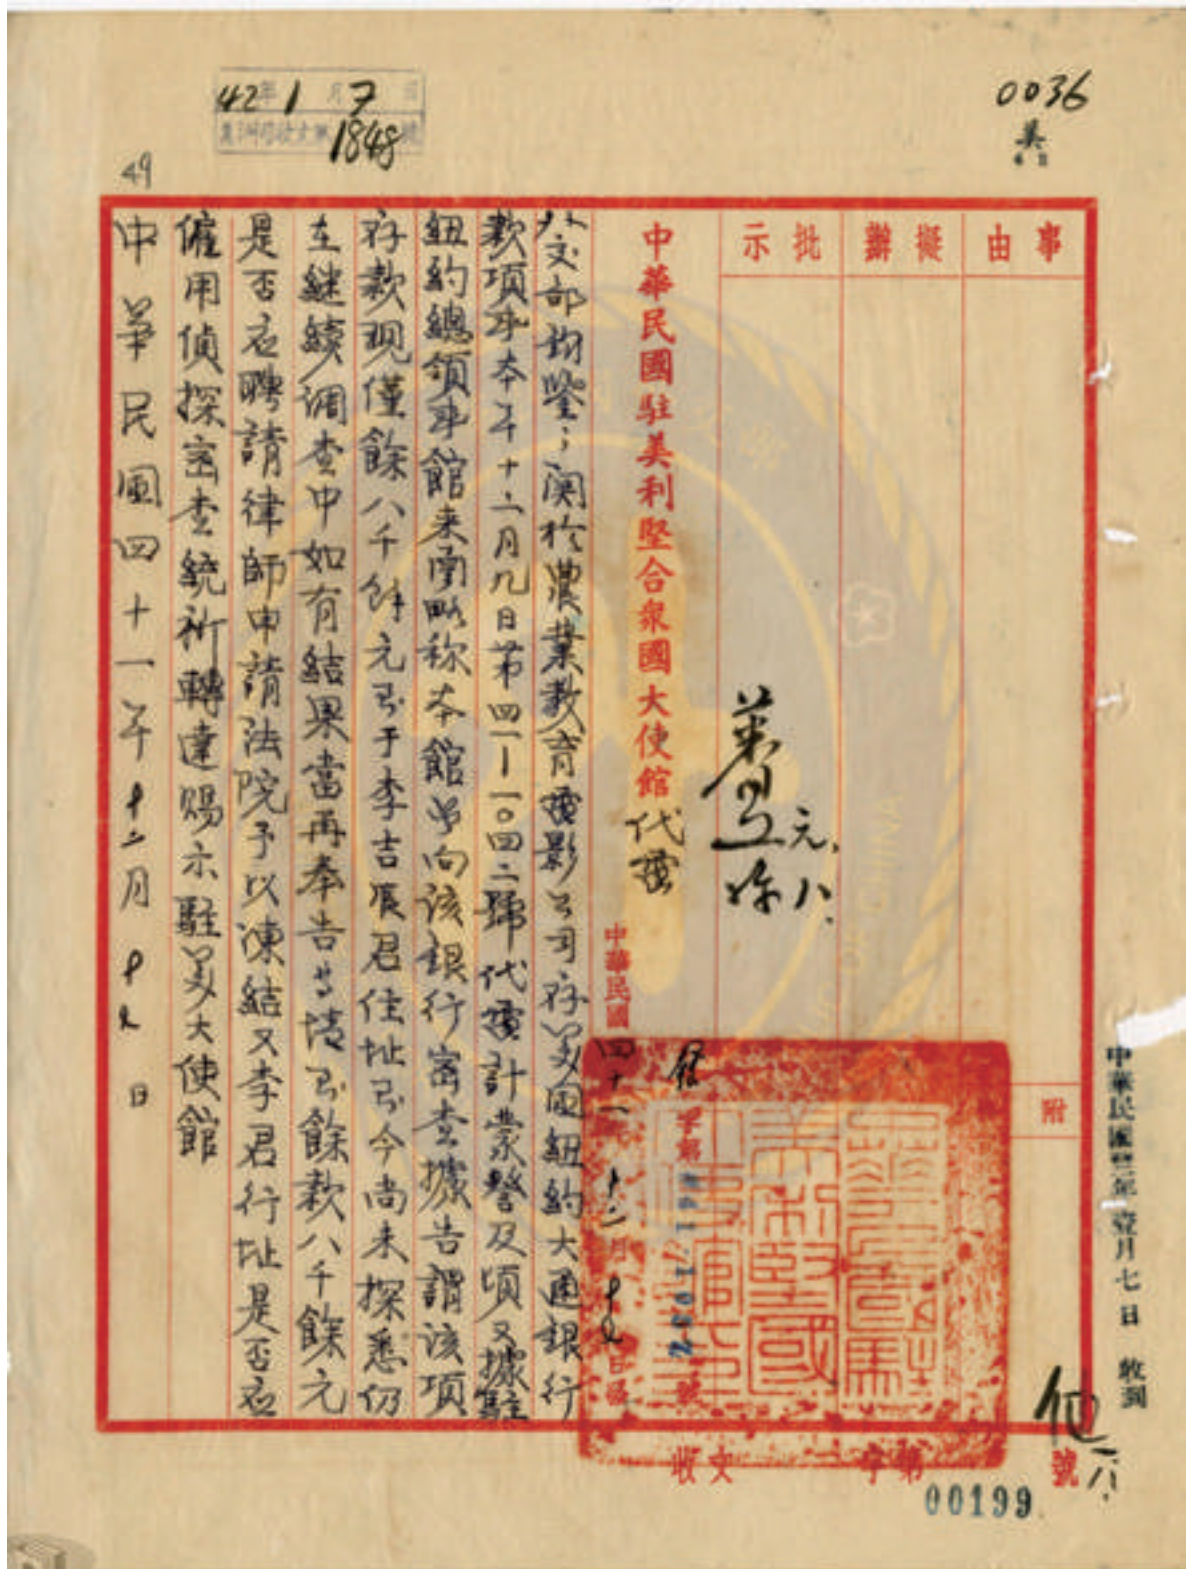 42年1月7日
1848
0036
美
49
事由
擬辦
批示
附
中華民國駐美利堅合衆國大使館代電
元、八、
中華民國四十一年十二月十九日
字第 號
411092
外交部鈞鑒：関於農業教育電影公司存美國紐約大通銀行
款項事本年十二月九日第四一一〇四二號代電計蒙詧及頃又據駐
紐約總領事館來函略称本館曾向該銀行密查據告謂該項
存款現僅餘八千餘元至于李吉辰君住址至今尚未探悉仍
在継續調查中如有結果當再奉告等情至餘款八千餘元
是否应聘請律師申請法院予以凍結又李君行址是否应
僱用偵探密查統祈轉達賜示駐美大使館
中華民國四十一年十二月十九日
中華民國 年壹月七日 收到
收文 字第 號
00199